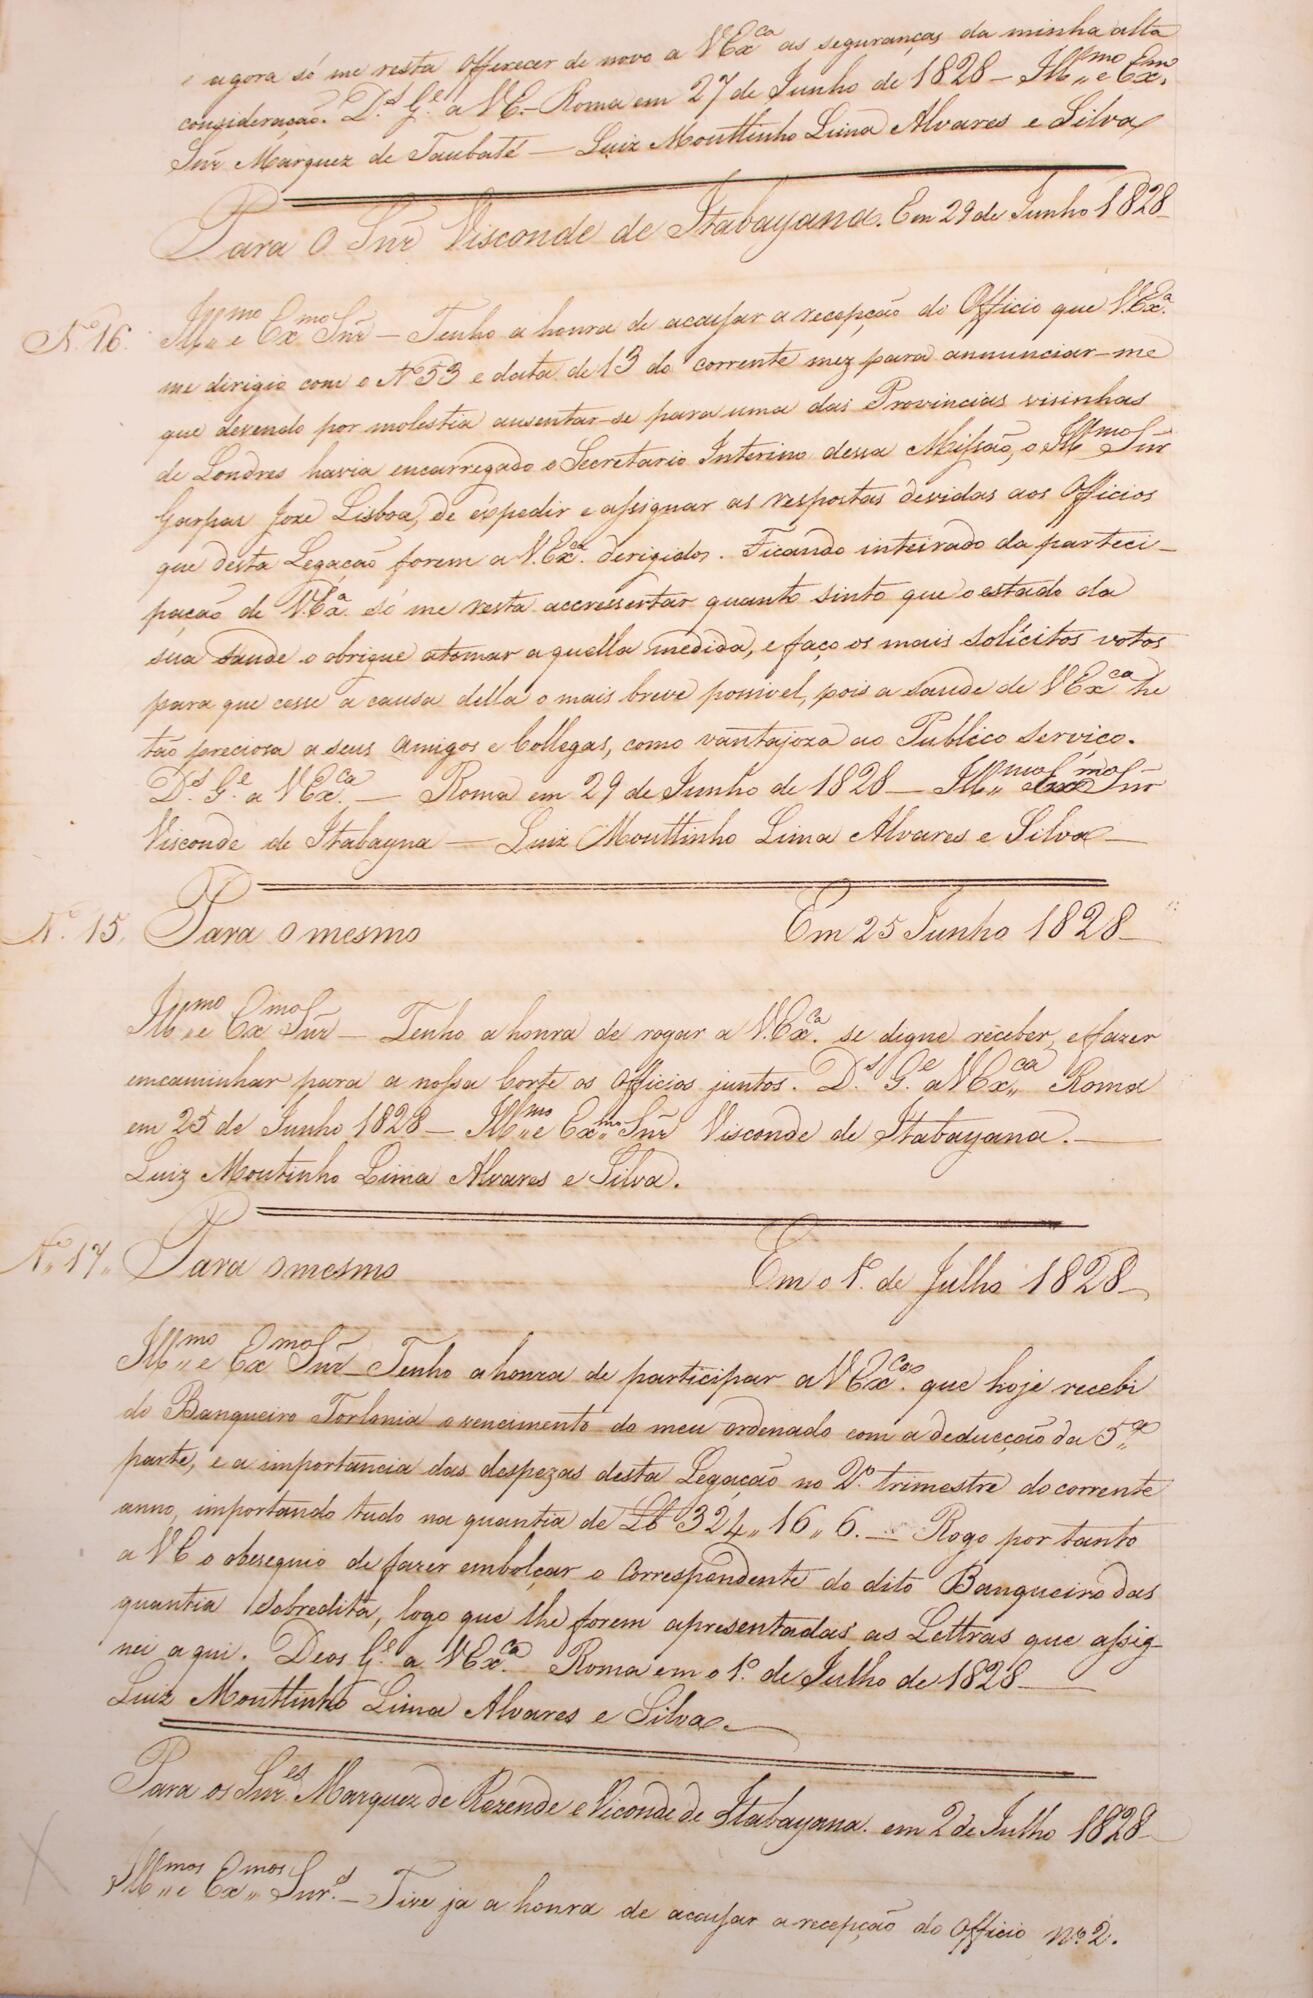 e agora só me resta offerecer de novo a V Ex.ca as seguranças da minha alta
consideração. D.s G.e a V E. — Roma em 27 de Junho de 1828 — Ill.mo e Ex.mo
Snr̃ Marquez de Taubaté — Luiz Mouttinho Lima Alvares e Silva
Para O Snr̃ Visconde de Itabayana. Em 29 de Junho 1828
N.º 16. Ill.mo e Ex.mo Snr̃ — Tenho a honra de accusar a recepção do Officio que V.Ex.a
me dirigio com o Nº 53 e data de 13 do corrente mez para annunciar-me
que devendo por molestia ausentar-se para uma das Provincias visinhas
de Londres havia encarregado o Secretario Interino dessa Missão, o Ill.mo Snr̃
Gaspar Joze Lisboa, de expedir e assignar as respostas devidas aos Officios
que desta Legação forem a V.Ex.ca derigidos. Ficando inteirado da parteci-
pação de V.Ex.a só me resta accressentar quanto sinto que o estado da
sua saude o obrigue atomar aquella medida, e faço os mais solicitos votos
para que cesse a causa della o mais breve possivel, pois a saude de V Ex.ca he
tão preciosa a seus Amigos e Collegas, como vantajoza ao Publico serviço.
D.s G.e a V Ex.ca — Roma em 29 de Junho de 1828 — Ill.mo Ex.mo Snr̃
Visconde de Itabayna — Luiz Mouttinho Lima Alvares e Silva —
N.º 15. Para o mesmo Em 25 Junho 1828 —
Ill.mo e Ex.mo Snr̃ — Tenho a honra de rogar a V.Ex.ca se digne receber, e fazer
encaminhar para a nossa Corte os Officios juntos. D.s G.e a V Ex.ca Roma
em 25 de Junho 1828 — Ill.mo e Ex.mo Snr̃ Visconde de Itabayana. —
Luiz Moutinho Lima Alvares e Silva.
N.º 17. Para o mesmo Em o 1º. de Julho 1828 —
Ill.mo e Ex.mo Snr̃ — Tenho a honra de participar a V Ex.ca que hoje recebi
do Banqueiro Torlonia o vencimento do meu ordenado com a deducção da 5.a
parte, e a importancia das despezas desta Legação no 2º. trimestre do corrente
anno, importando tudo na quantia de Lb 324,, 16,, 6. — Rogo por tanto
a V E o obsequio de fazer embolçar o Correspondente do dito Banqueiro das
quantia sobredita, logo que lhe forem apresentadas as Lettras que assig-
nei aqui. Deos G.e a V Ex.ca Roma em o 1º. de Julho de 1828 —
Luiz Mouttinho Lima Alvares e Silva. —
Para os Snr.es Marquez de Rezende e Viconde de Itabayana. em 2 de Julho 1828 —
Ill.mos e Ex.mos Snr.es — Tive ja a honra de accusar a recepção do Officio nº 2.